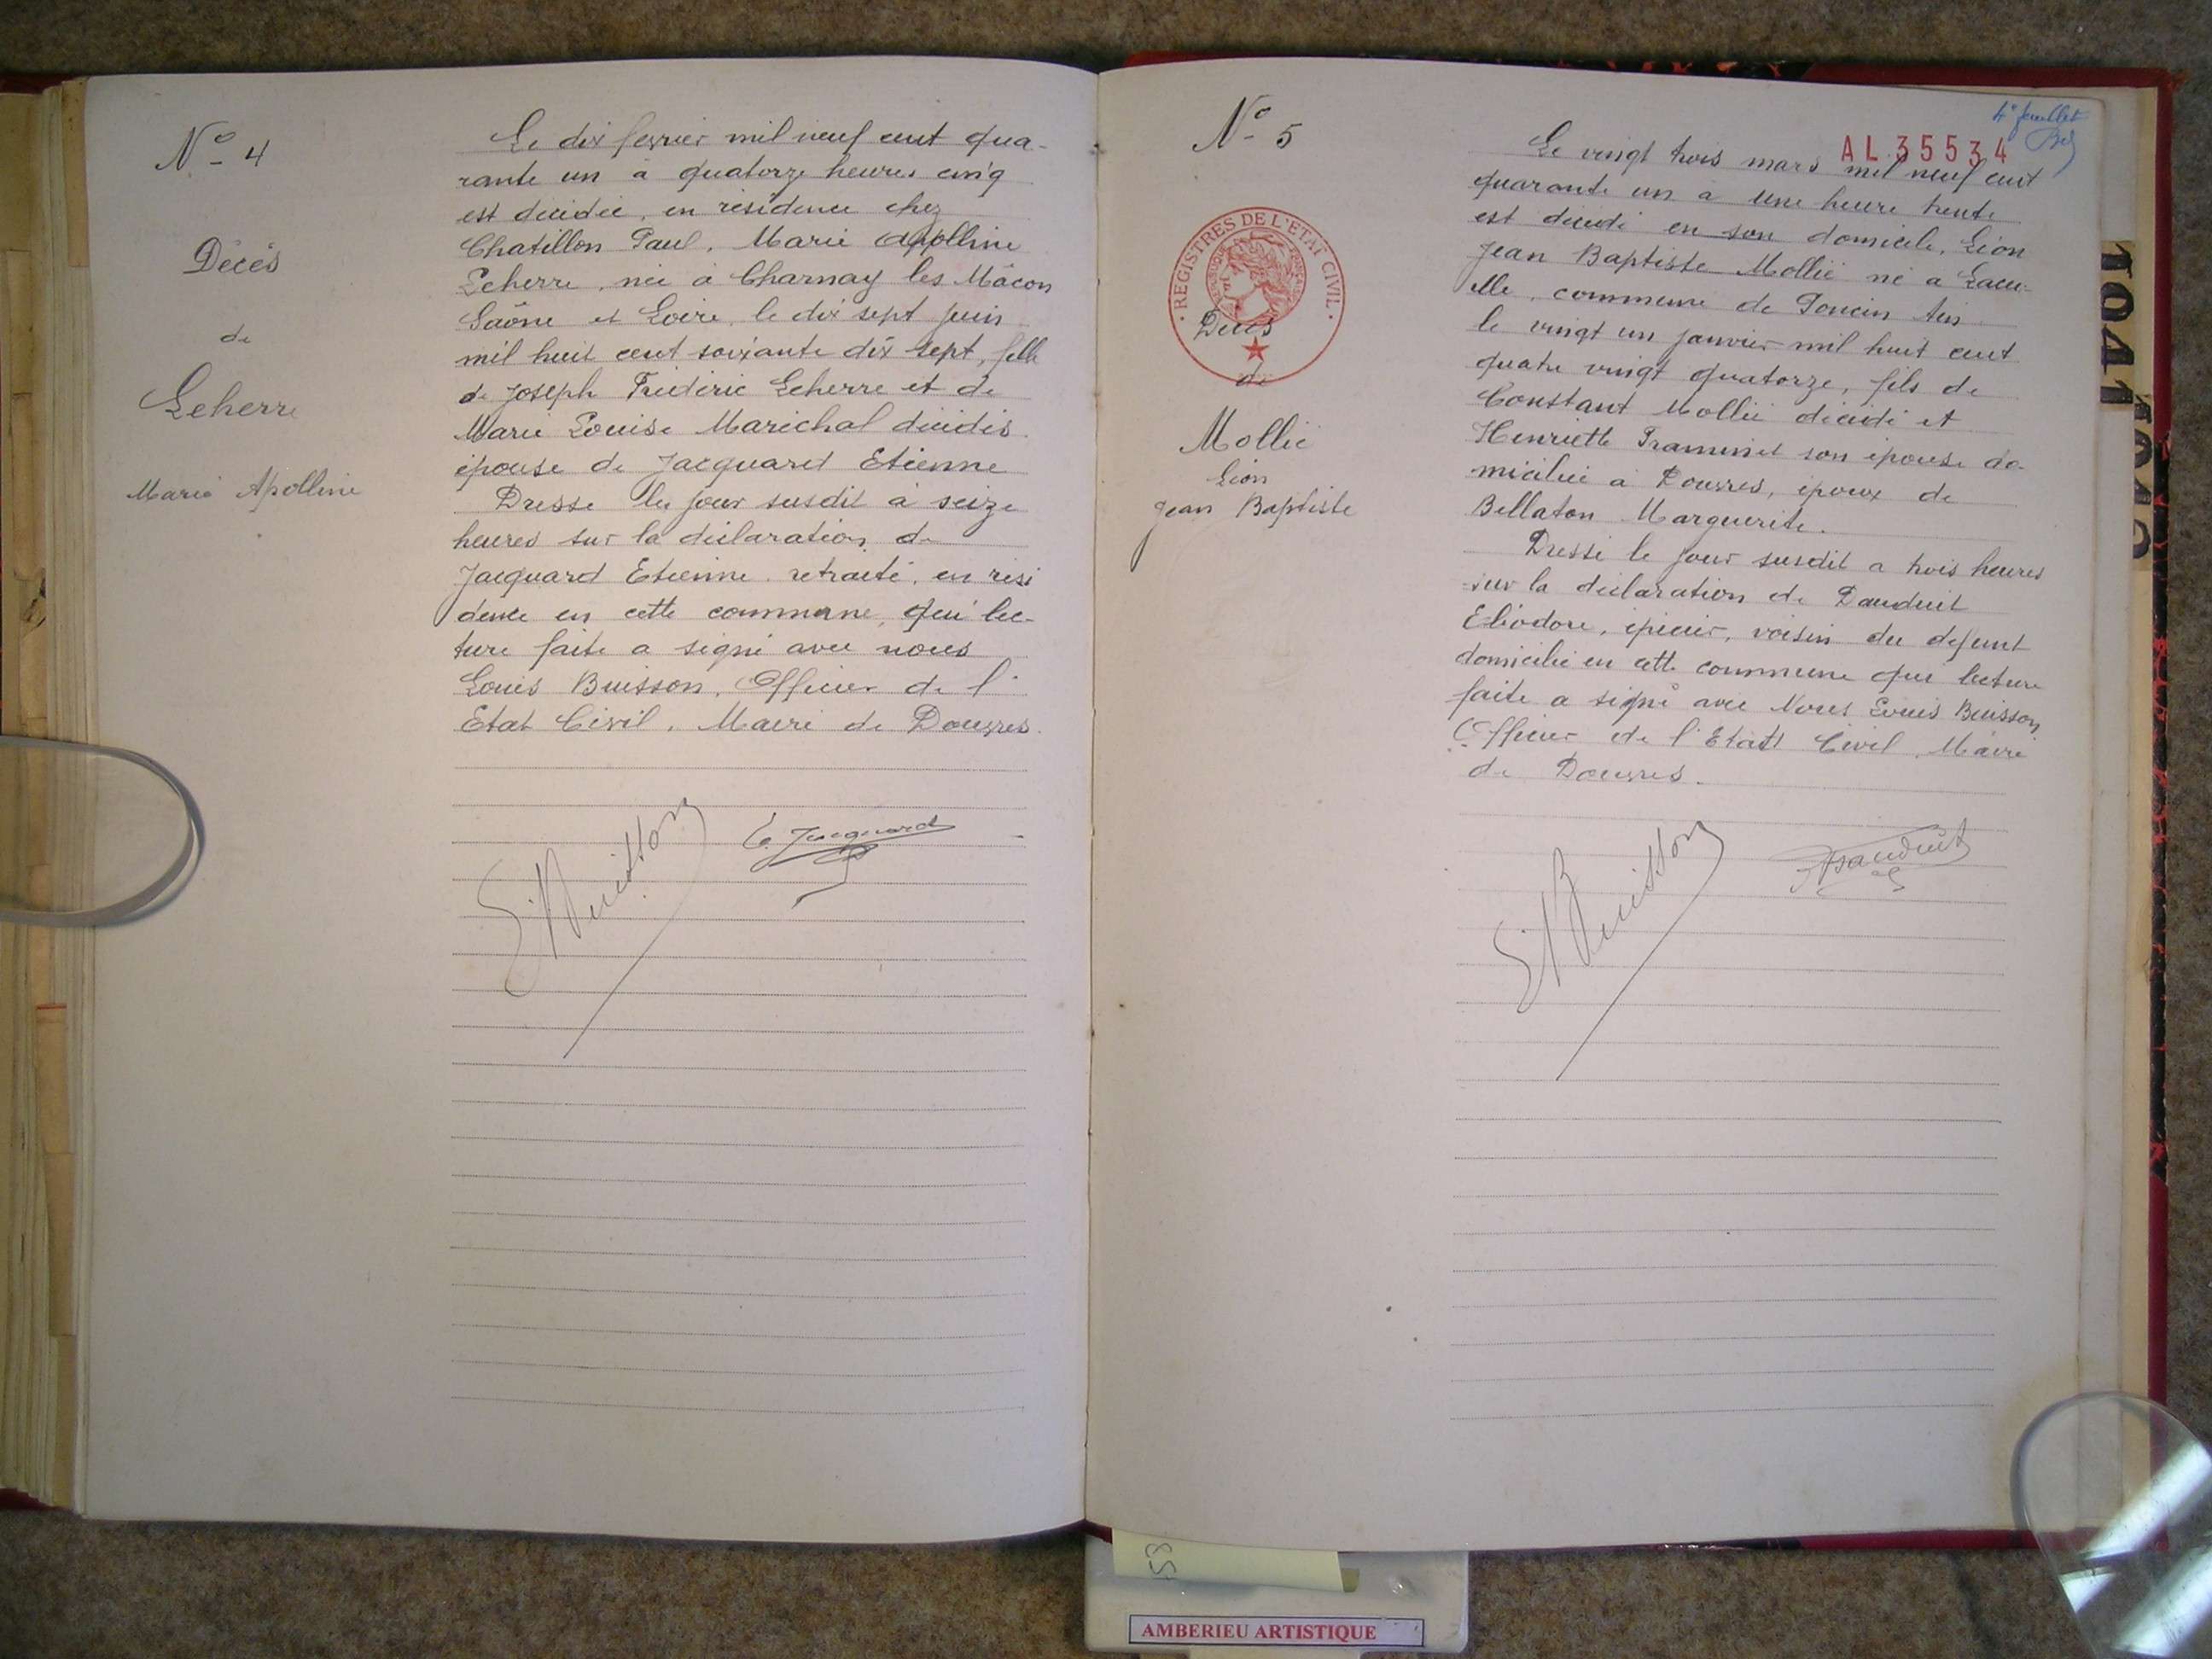 N° 4
Décès
de
Leherre
Marie Apolline
Le dix fevrier mil neuf cent qua-
rante un à quatorze heures cinq
est décidée, en résidence chez
Chatillon Paul, Marie Appolline
Leherre, née à Charnay les Mâcon
Saône et Loire, le dix sept juin
mil huit cent soixante dix sept, fille
de Joseph Frédéric Leherre et de
Marie Louise Maréchal décidés
épouse de Jacquard Etienne
Dressé le jour susdit à seize
heures sur la déclaration de
Jacquard Etienne retraité, en rési
dence en cette commune, qui lec-
ture faite a signé avec nous
Louis Buisson, Officier de l'
Etat Civil, Maire de Douvres.
L. Buisson
E. Jacquard
4e feuillet
AL 35534
N° 5
REGISTRES DE L'ETAT CIVIL
Décès
de
Mollié
Léon
Jean Baptiste
Le vingt trois mars mil neuf cent
quarante un a une heure trente
est décédé en son domicile, Léon
Jean Baptiste Mollié né a
elle, commune de Poncin Ain
le vingt un janvier mil huit cent
quatre vingt quatorze, fils de
Constant Mollié décédé et
Henriette son épouse do-
miciliée à Douvres, époux de
Bellaton Marguerite.
Dressé le jour susdit a trois heures
sur la déclaration de Dauduit
Eliodore, épicier, voisin du defunt
domicilié en cette commune qui lecture
faite a signé avec Nous Louis Buisson
Officier de l'Etat Civil, Maire
de Douvres.
L. Buisson
Dauduit
T041
AMBERIEU ARTISTIQUE